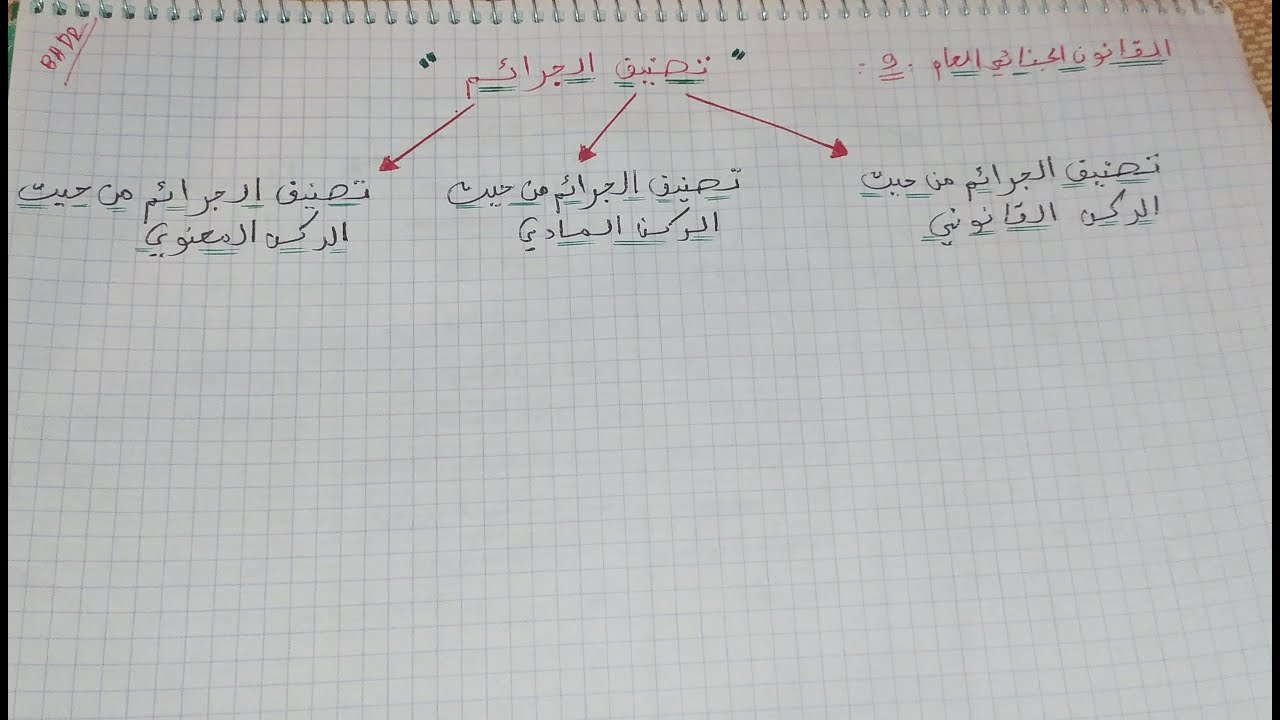 القانون الجنائي العام : 9 :
" تصنيف الجرائم "
BADR
تصنيف الجرائم من حيث
الركن القانوني
تصنيف الجرائم من حيث
الركن المادي
تصنيف الجرائم من حيث
الركن المعنوي